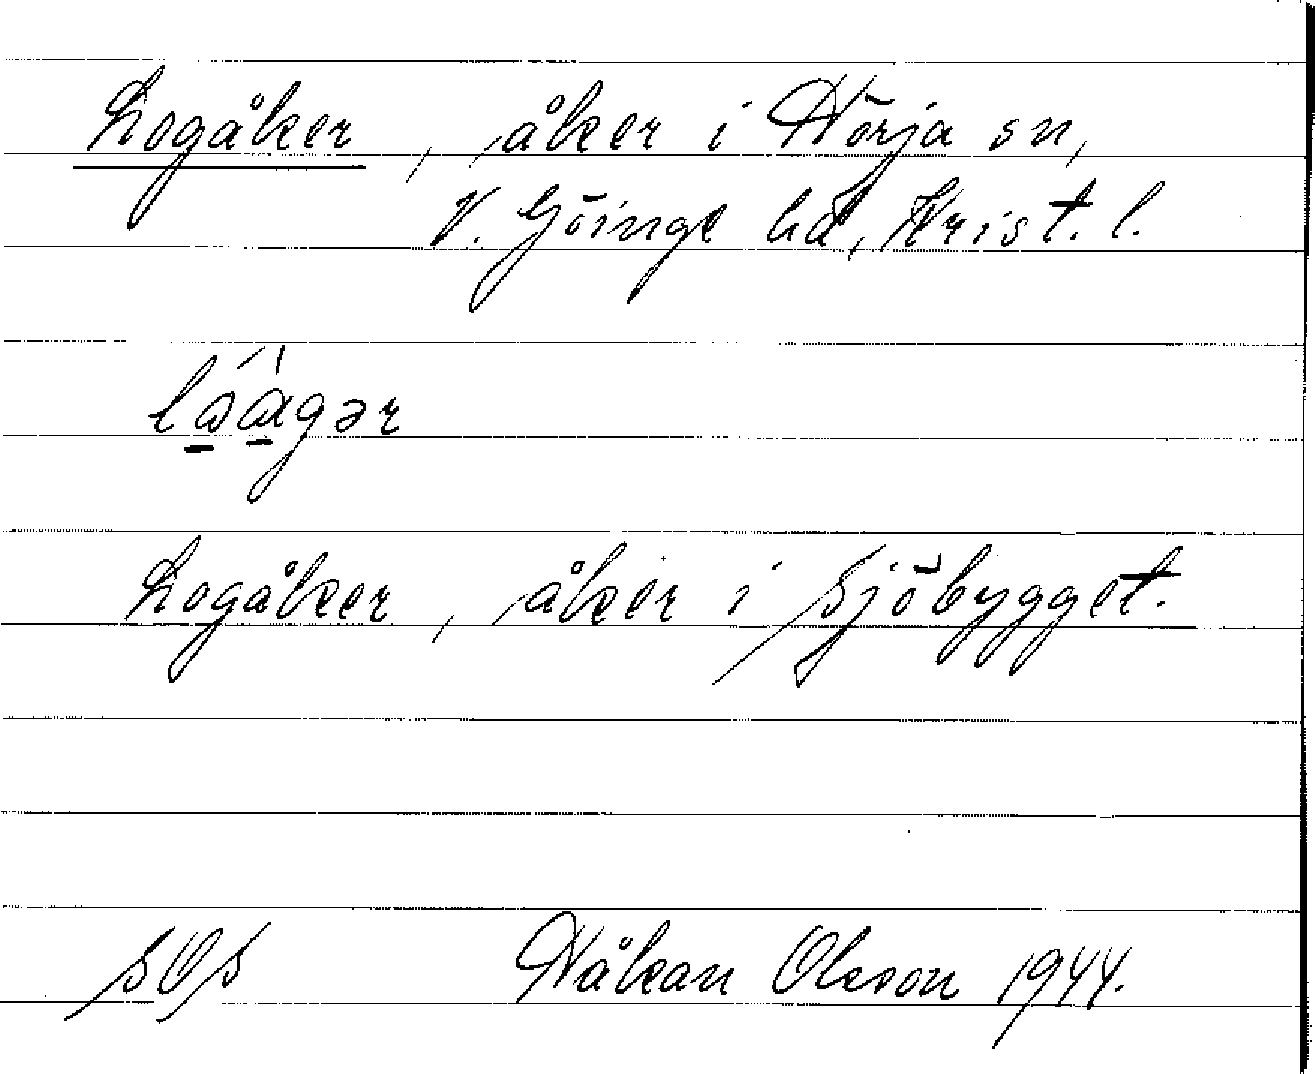 Logåker, åker i Nörja sn,
V. Göinge hd, Krist. l.
Logåker, åker i Sjöbygget.
SOS Håkan Olsson 1944.